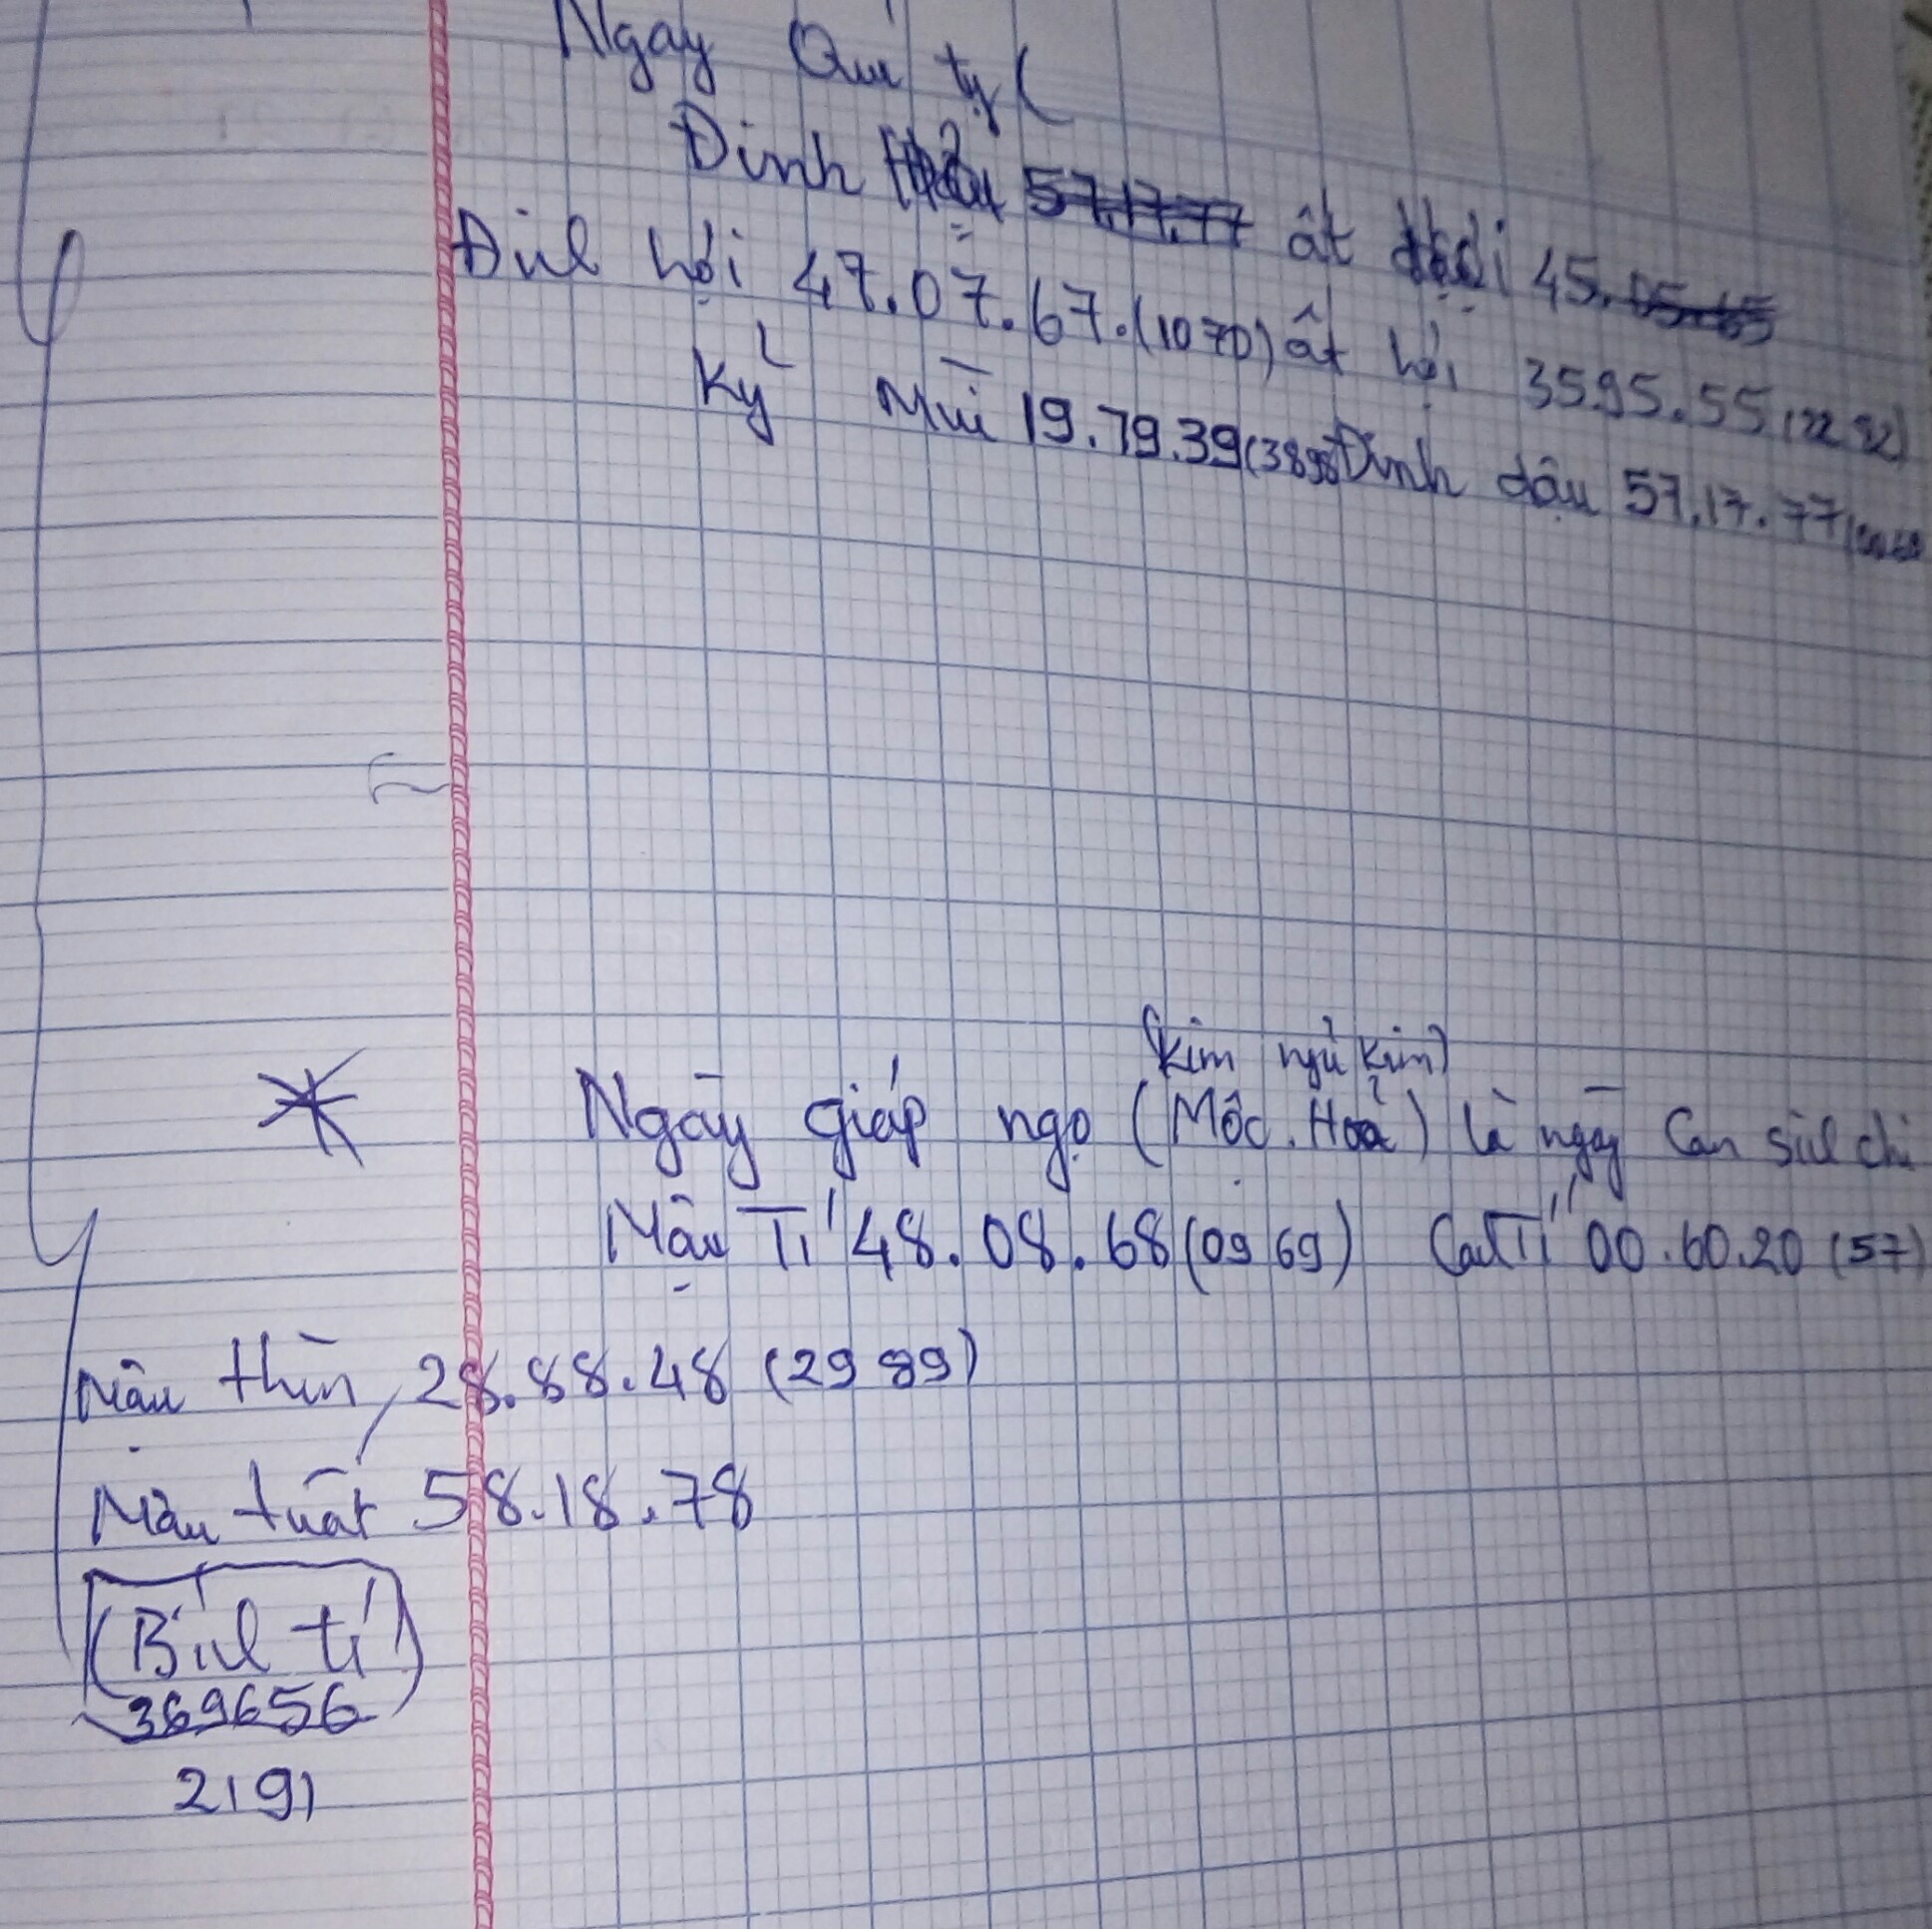 Ngày Quí tỵ (
Đinh ất 45.
Đinh hợi 47.07.67.(1070) ất hợi 3595.55 (2292)
Kỷ Mùi 19.79.39 (3898 Đinh dậu 57.17.77
(kim ngũ kim)
Ngày giáp ngọ (Mộc. Hoả) là ngày Can sinh chi
Mậu Tí 48.08.68 (09 69) Canh Tí 00.60.20 (57)
Mậu thìn, 28.88.48 (29 89)
Mậu tuất 58.18.78
(Bính tí)
369656
2191